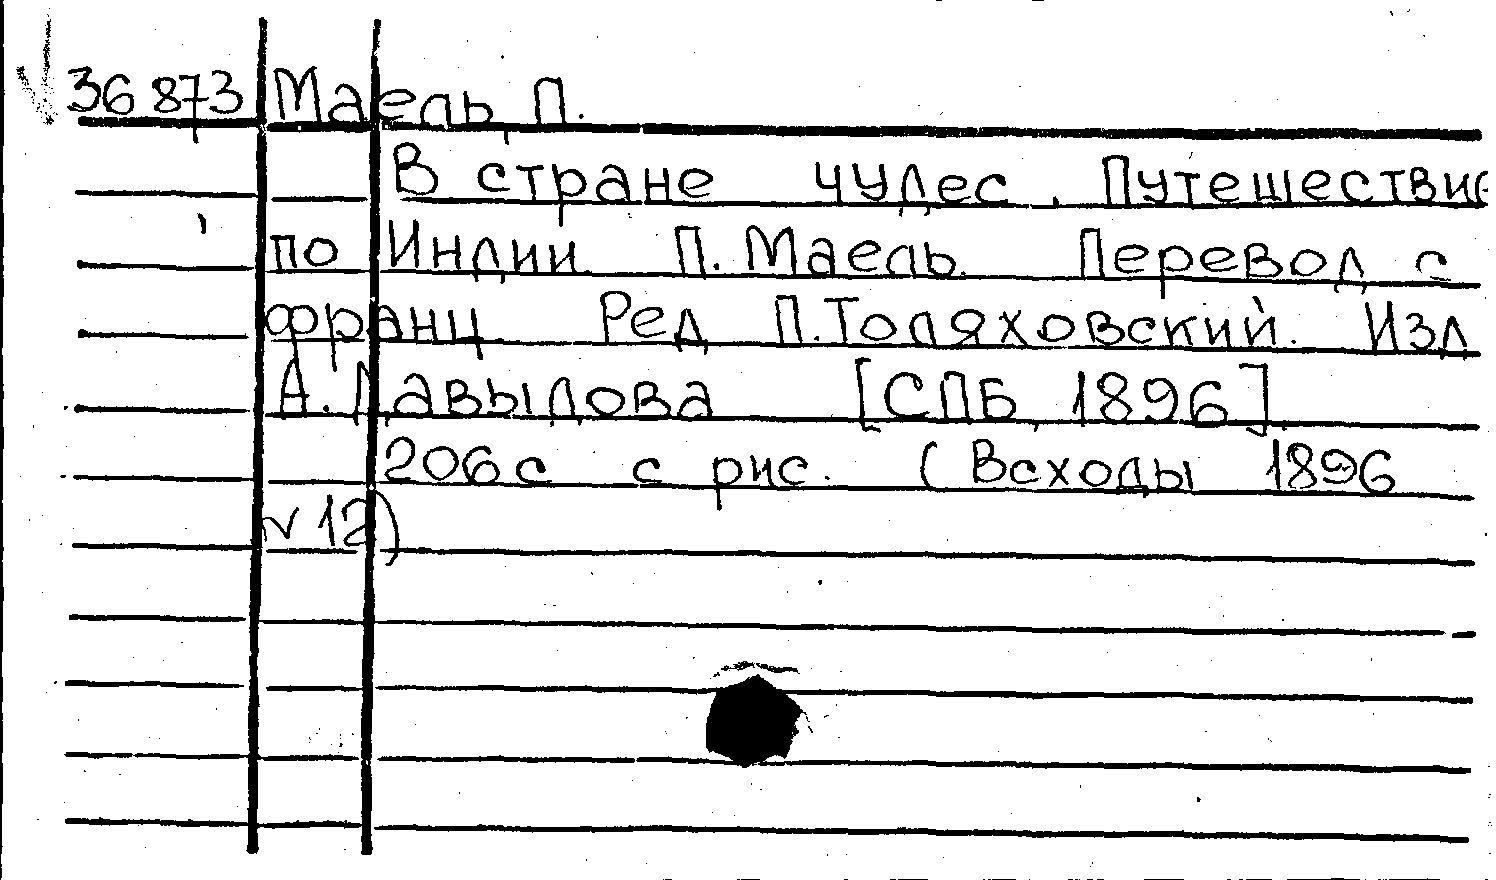 36873 Маель, П.
В стране чудес. Путешествие
по Индии П. Маель. Перевод с
франц Ред П. Толяховский. Изд
А. Давыдова [СПБ, 1896].
206 с с рис. (Всходы 1896
№ 12)